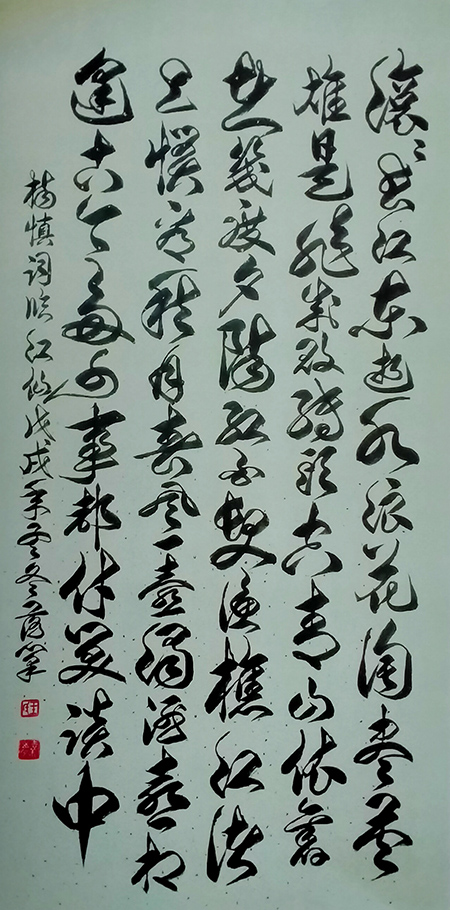 滾滾長江東逝水浪花淘盡英
雄是非成敗轉頭空青山依舊
在幾度夕陽紅白髮漁樵江渚
上慣看秋月春風一壺濁酒喜相
逢古今多少事都付笑談中
楊慎詞臨江仙戊戌年冬